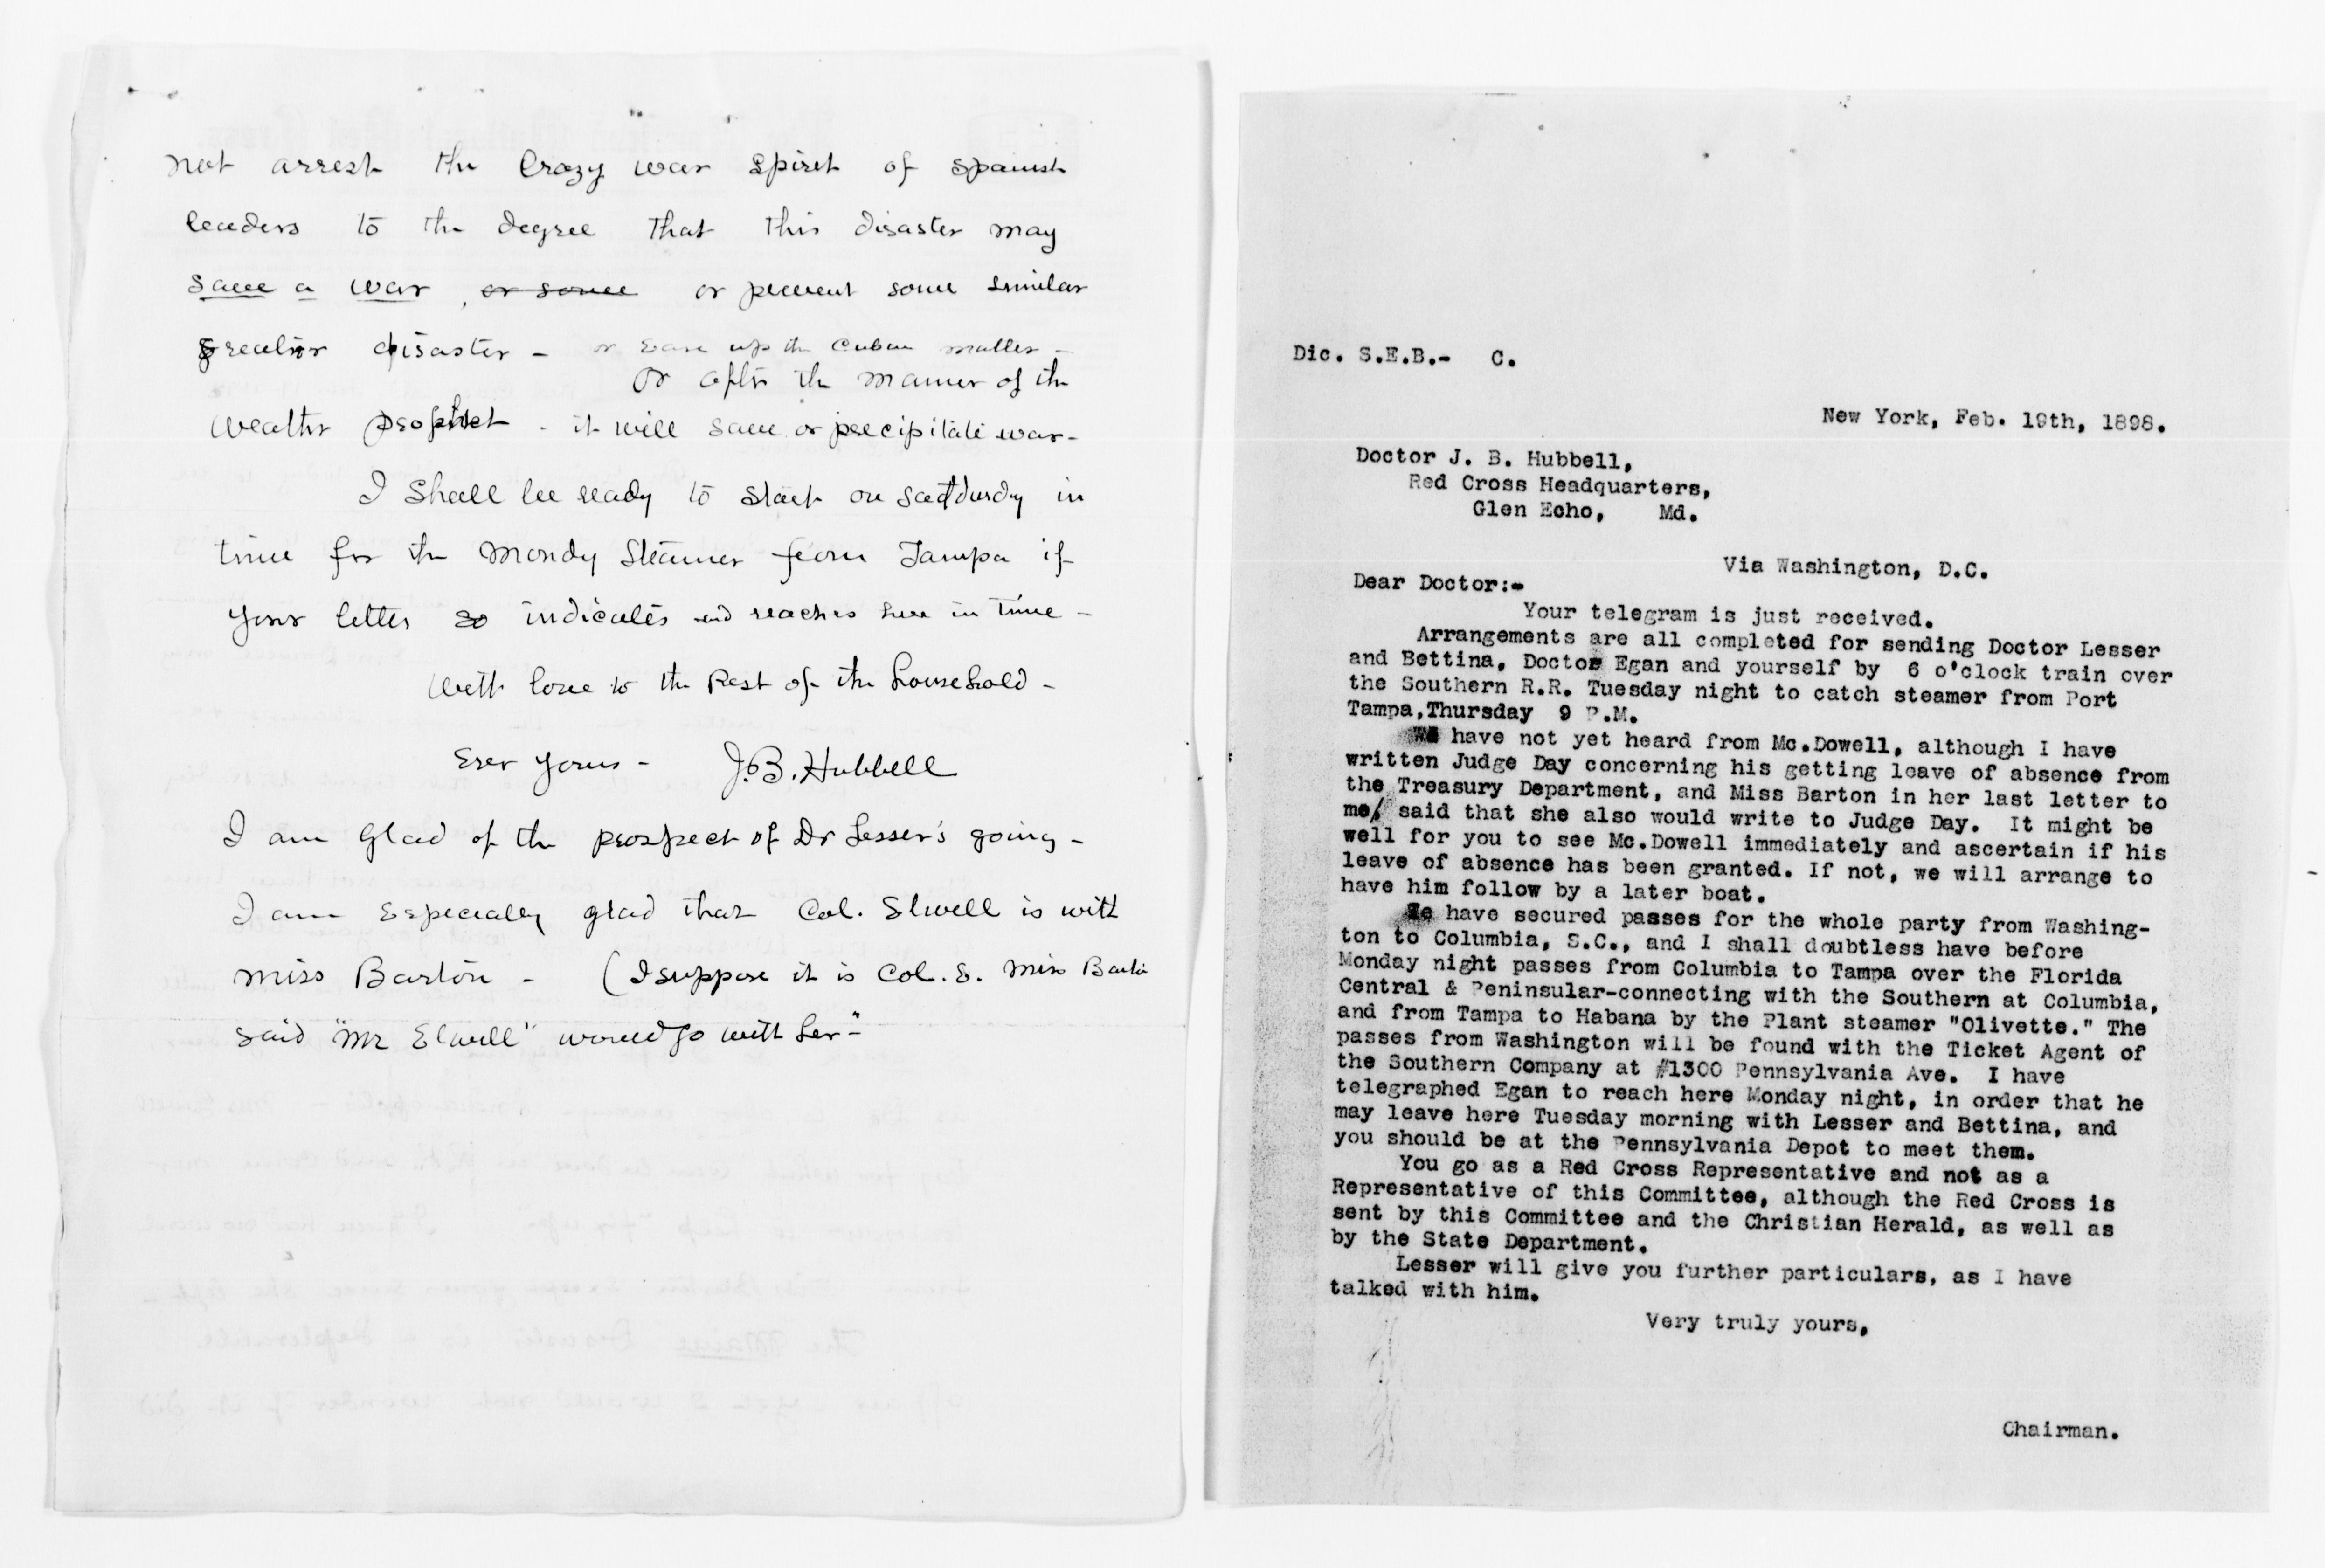 not arrest the Crazy war spirit of spanish
leaders to the degree that this disaster may
save a war, or some or prevent some similar
greater disaster - or ease up the Cuban matter -
or after the manner of the
weather prophet - it will save or precipitate war -
I shall be ready to start on Satdurdy in
time for the Mondy Steamer from Tampa if
your letter so indicates and reaches here in time -
With love to the Rest of the household -
Ever yours - J.B. Hubbell
I am Glad of the prospect of Dr Lesser's going -
I am Especially glad that Col. Elwell is with
Miss Barton - (I suppose it is Col. E. Miss Barton
said "Mr Elwell" would go with her -"
Dic. S.E.B.- C.
New York, Feb. 19th, 1898.
Doctor J. B. Hubbell,
Red Cross Headquarters,
Glen Echo, Md.
Via Washington, D.C.
Dear Doctor:-
Your telegram is just received.
Arrangements are all completed for sending Doctor Lesser
and Bettina, Doctor Egan and yourself by 6 o'clock train over
the Southern R.R. Tuesday night to catch steamer from Port
Tampa,Thursday 9 P.M.
We have not yet heard from Mc.Dowell, although I have
written Judge Day concerning his getting leave of absence from
the Treasury Department, and Miss Barton in her last letter to
me, said that she also would write to Judge Day. It might be
well for you to see Mc.Dowell immediately and ascertain if his
leave of absence has been granted. If not, we will arrange to
have him follow by a later boat.
We have secured passes for the whole party from Washing-
ton to Columbia, S.C., and I shall doubtless have before
Monday night passes from Columbia to Tampa over the Florida
Central & Peninsular-connecting with the Southern at Columbia,
and from Tampa to Habana by the Plant steamer "Olivette." The
passes from Washington will be found with the Ticket Agent of
the Southern Company at #1300 Pennsylvania Ave. I have
telegraphed Egan to reach here Monday night, in order that he
may leave here Tuesday morning with Lesser and Bettina, and
you should be at the Pennsylvania Depot to meet them.
You go as a Red Cross Representative and not as a
Representative of this Committee, although the Red Cross is
sent by this Committee and the Christian Herald, as well as
by the State Department.
Lesser will give you further particulars, as I have
talked with him.
Very truly yours,
Chairman.